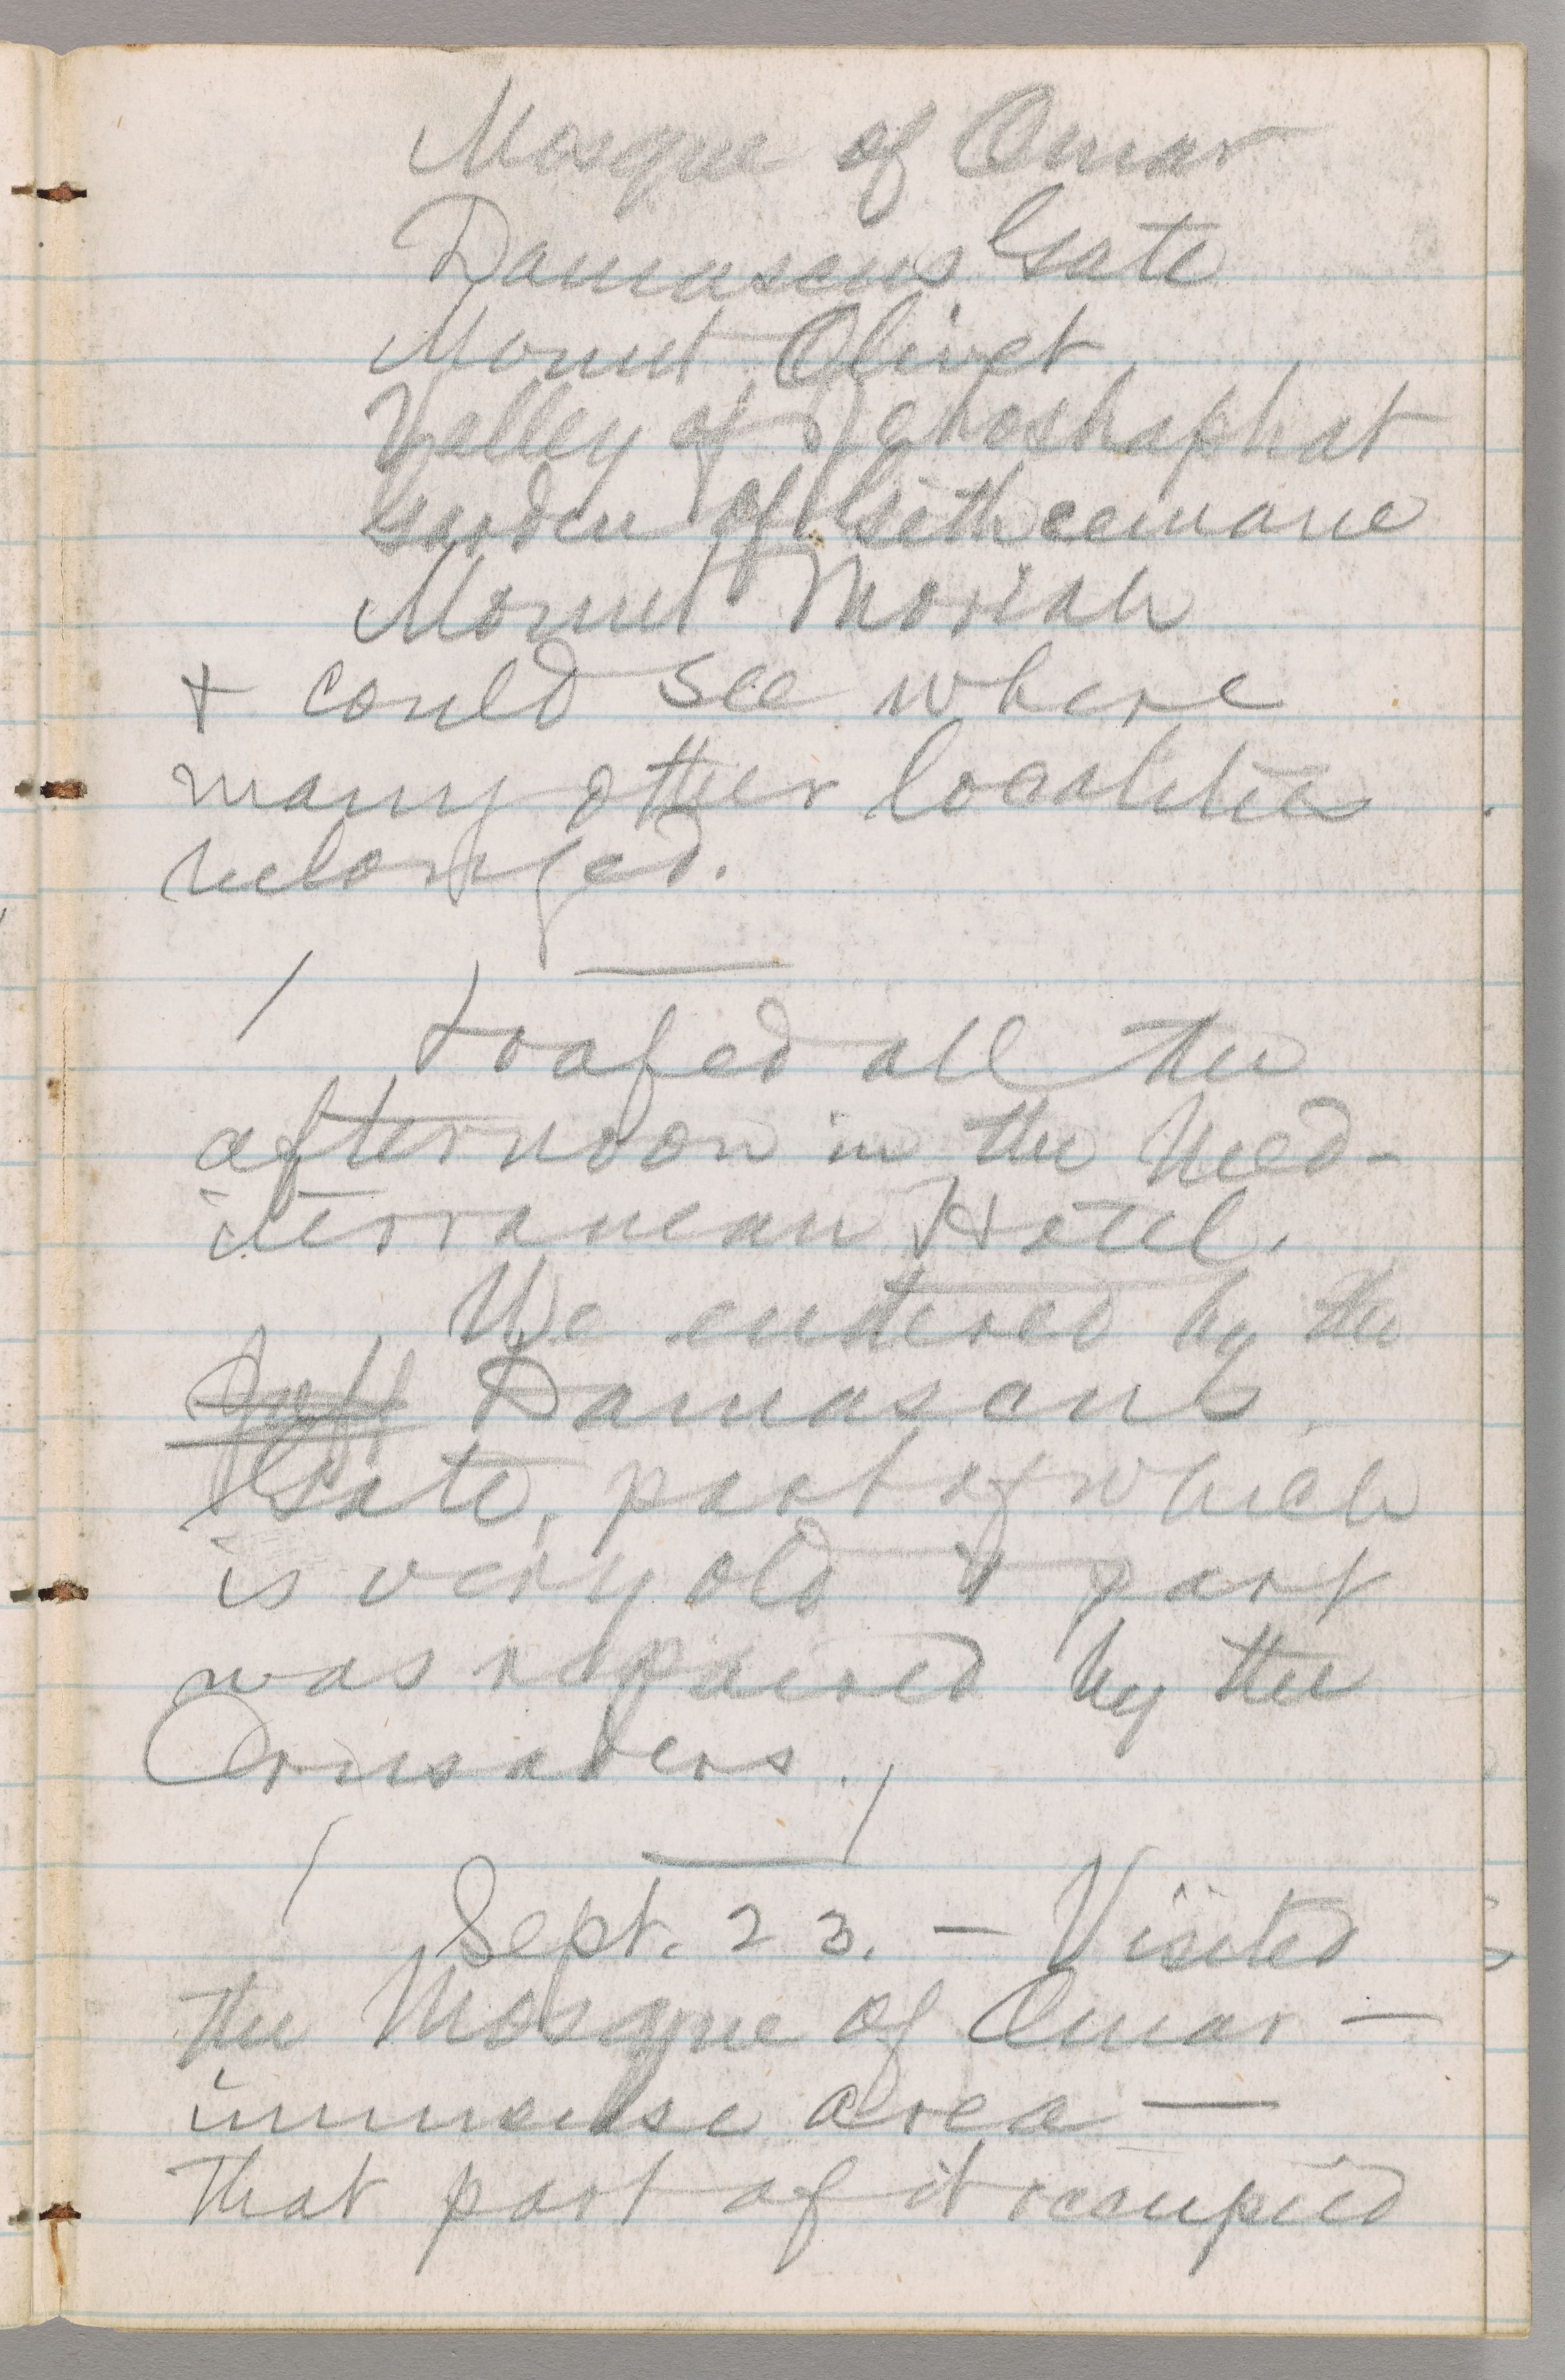 Mosque of Omar
Damascus Gate
Mount Olivet
Valley of Jehoshaphat
Garden of Gethcemane
Mount Moriah
& could see where
many other localities
belonged.
Loafed all the
afternoon in the Med-
iterranean Hotel.
We entered by the
Jaff Damascus
Gate, part of which
is very old & part
was repaired by the
Crusaders.
Sept. 23. — Visited
the Mosque of Omar —
immense area —
That part of it occupied